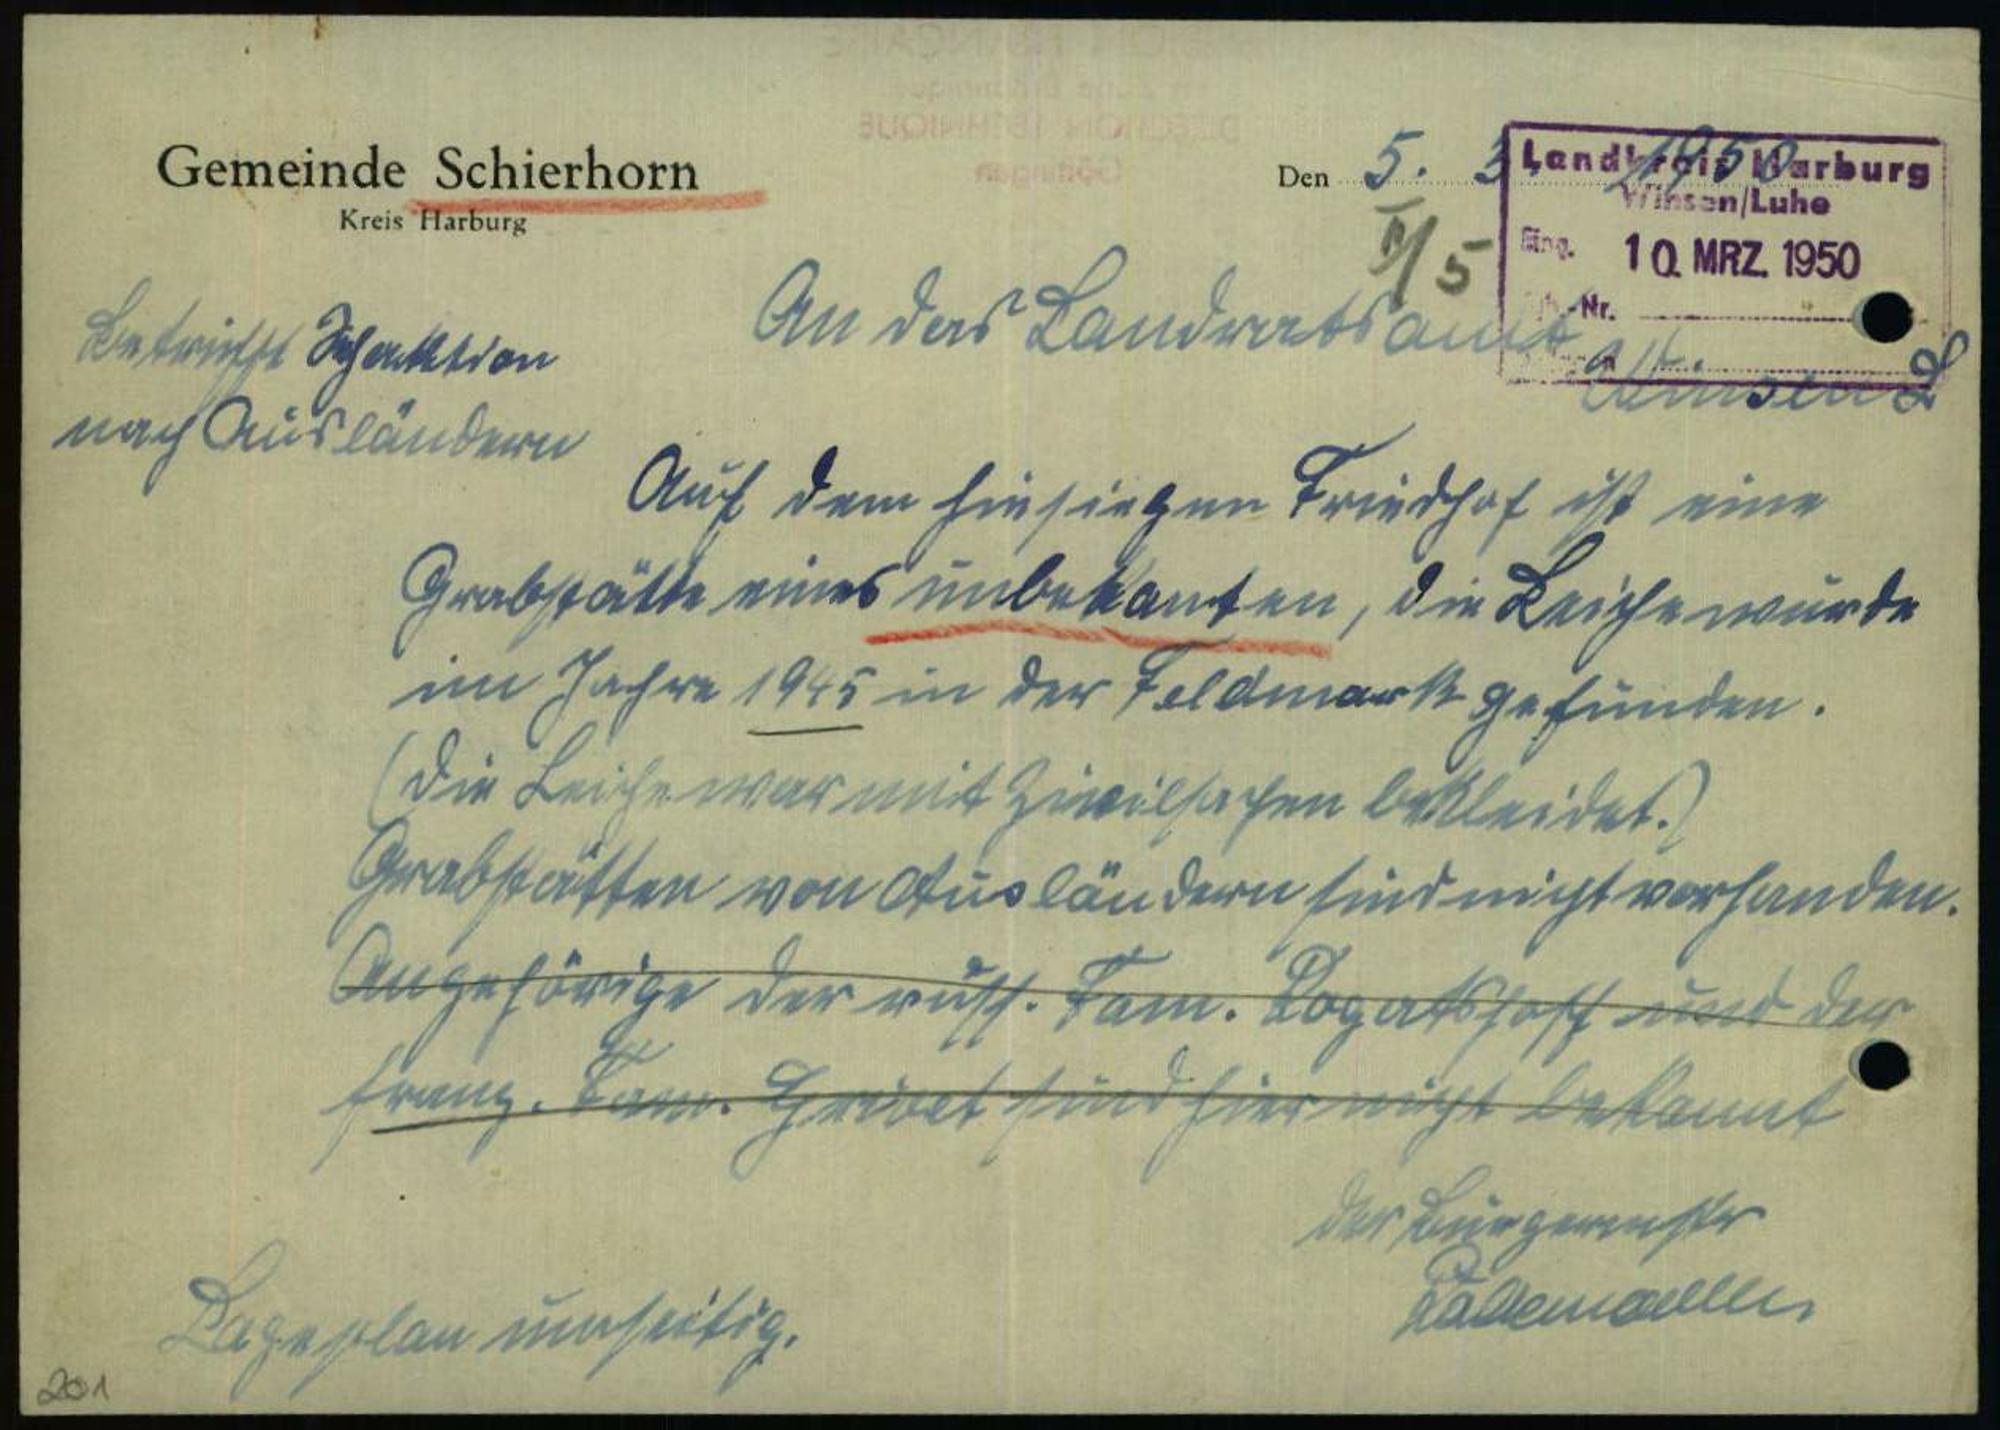 Gemeinde Schierhorn
Kreis Harburg
Den 5. 3. 1950
Landkreis Harburg
Winsen/Luhe
Eing. 10. MRZ. 1950
-Nr.
II/5
An das Landratsamt
Winsen L
Betrifft Suchaktion
nach Ausländern
Auf dem hiesiegen Friedhof ist eine
Grabstätte eines unbekanten, die Leiche wurde
im Jahre 1945 in der Feldmark gefunden.
(Die Leiche war mit Zivilsachen bekleidet.)
Grabstätten von Ausländern sind nicht vorhanden.
Angehörige der russ. Fam. und der
franz. Fam. sind hier nicht bekannt
der Bürgermstr
Lageplan umseitig.
201